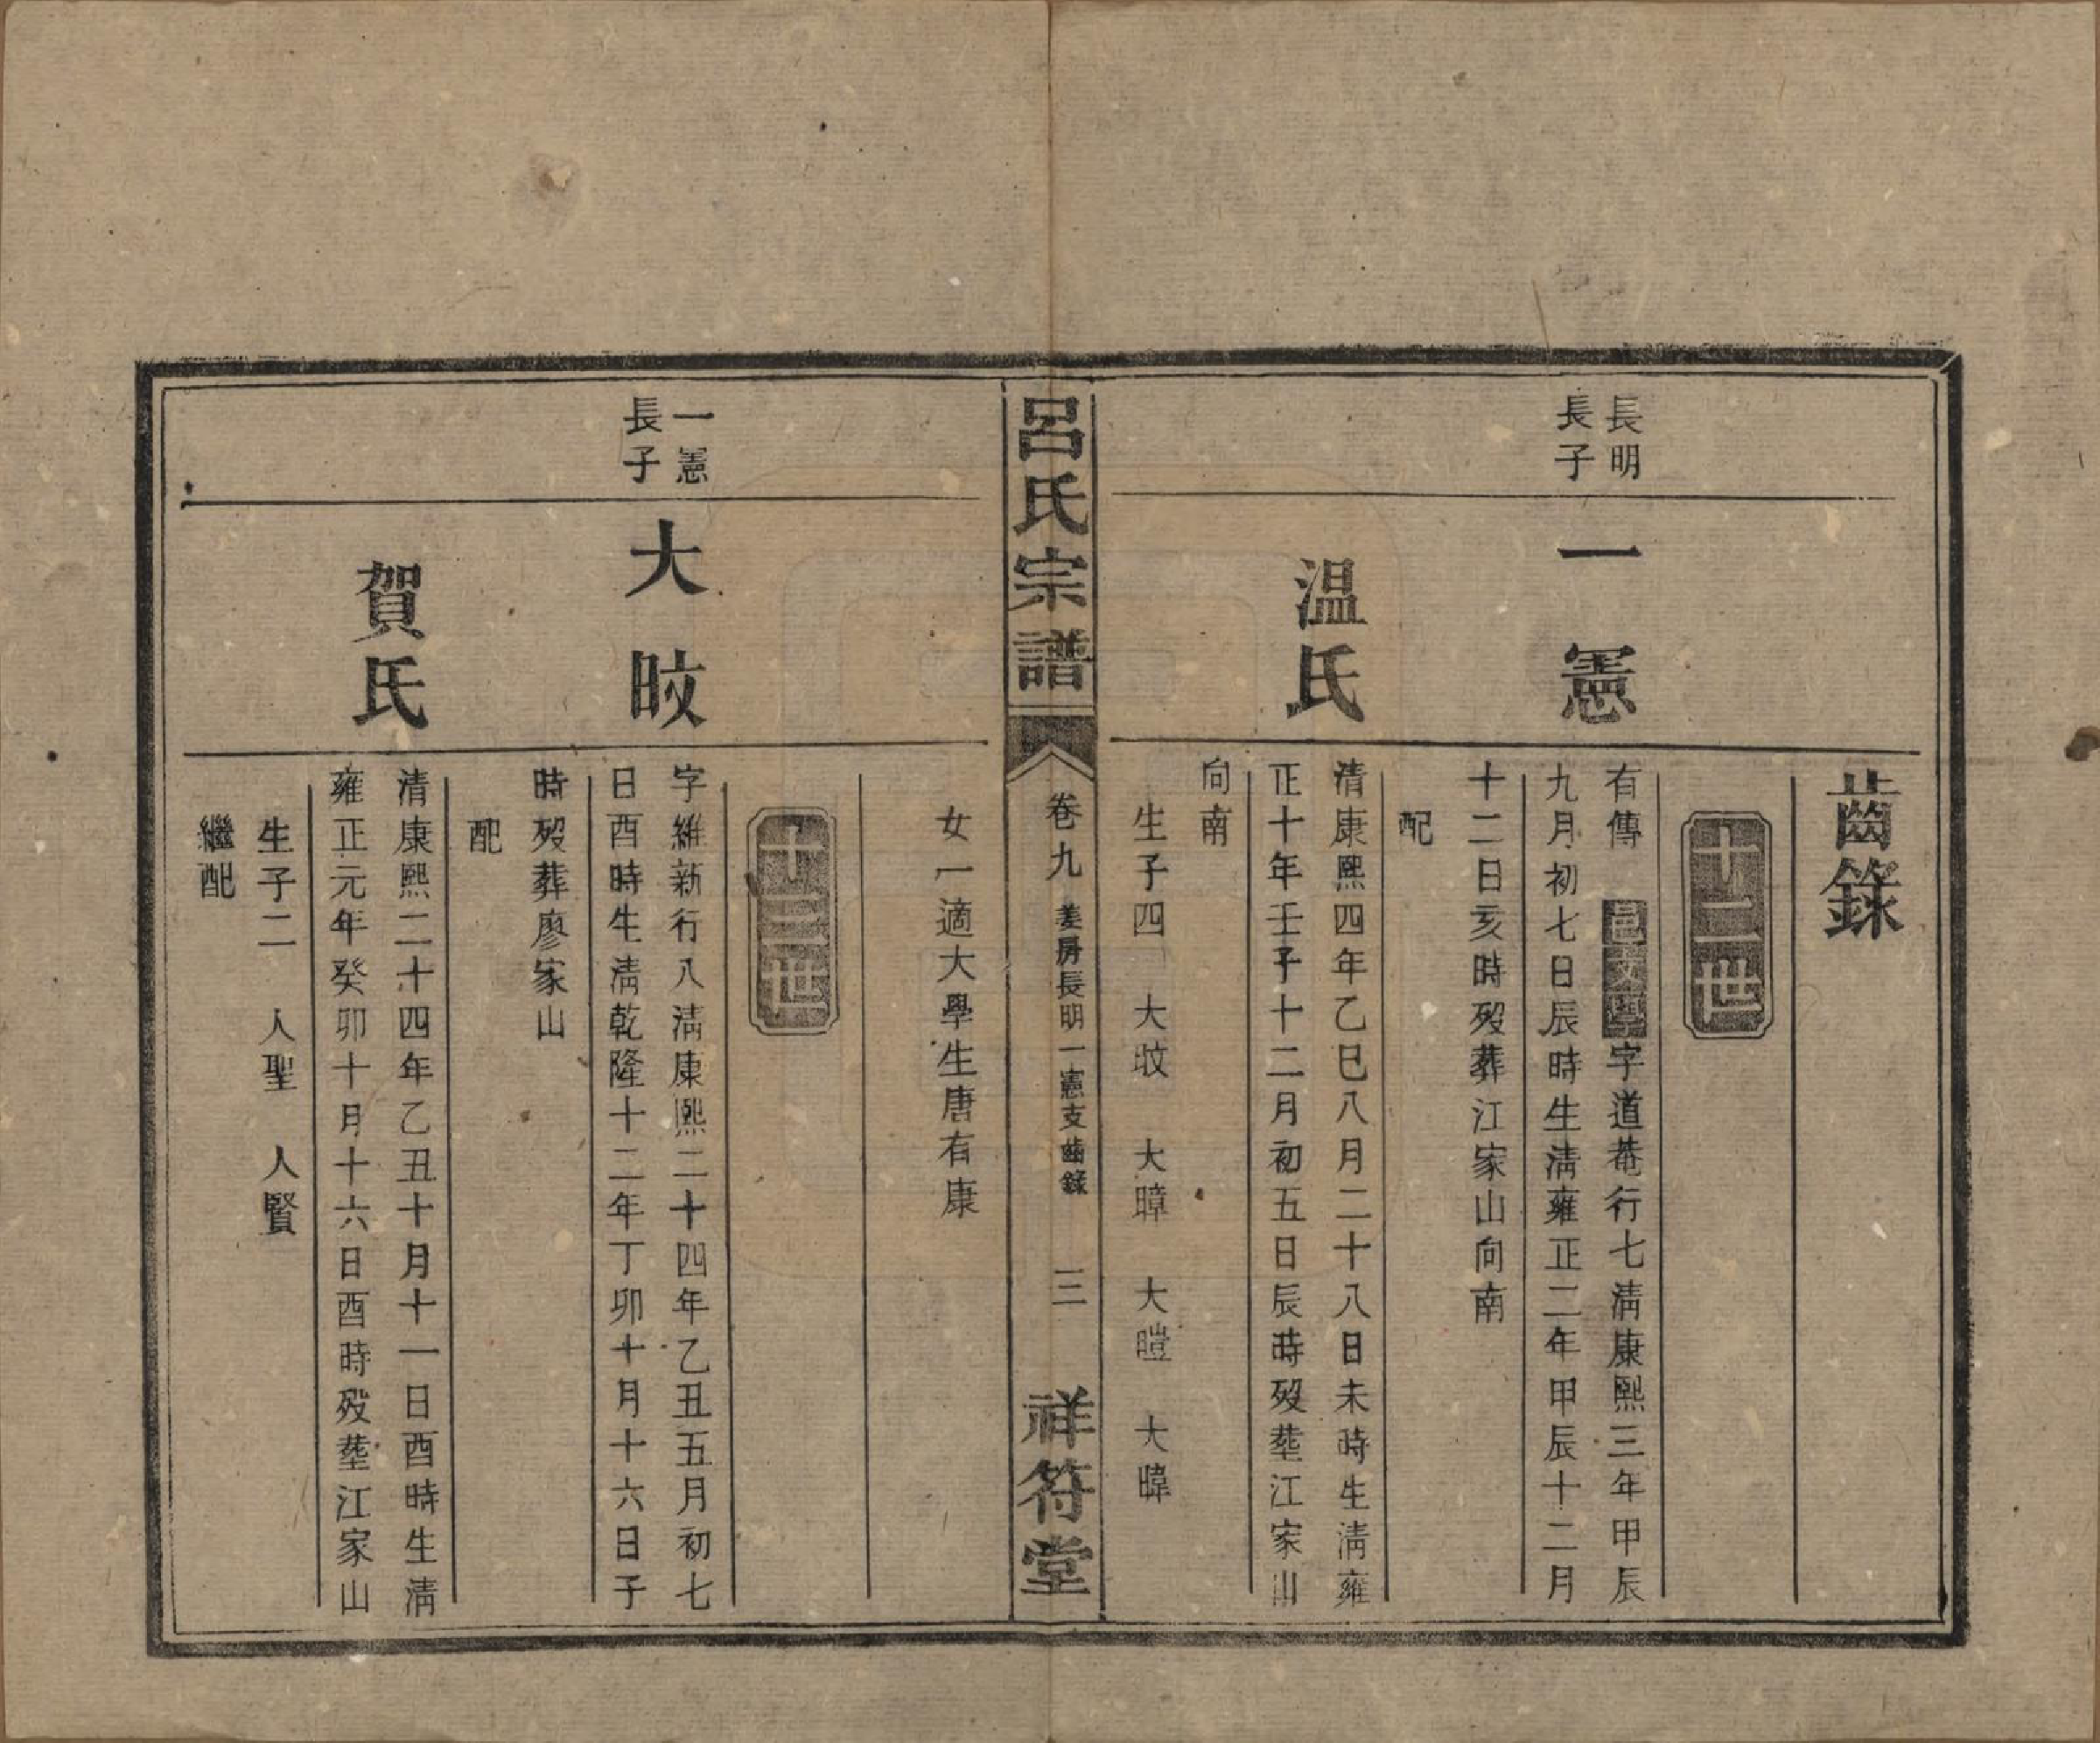 齒錄
十二世
長明
長子
一憲
有傳 邑文庠字道菴行七淸康熙三年甲辰
九月初七日辰時生淸雍正二年甲辰十二月
十二日亥時歿葬江家山向南
配
温氏
清康熙四年乙巳八月二十八日未時生淸雍
正十年壬子十二月初五日辰時歿塟江家山
向南
生子四 大旼 大暲 大暟 大暐
呂氏宗譜
卷九 差房長明一憲支齒錄 三
祥符堂
女一適大學生唐有康
十三世
一憲
長子
大旼
字維新行八淸康熙二十四年乙丑五月初七
日酉時生淸乾隆十二年丁卯十月十六日子
時歿葬廖家山
配
賀氏
清康熙二十四年乙丑十月十一日酉時生淸
雍正元年癸卯十月十六日酉時歿塟江家山
生子二 人聖 人賢
繼配